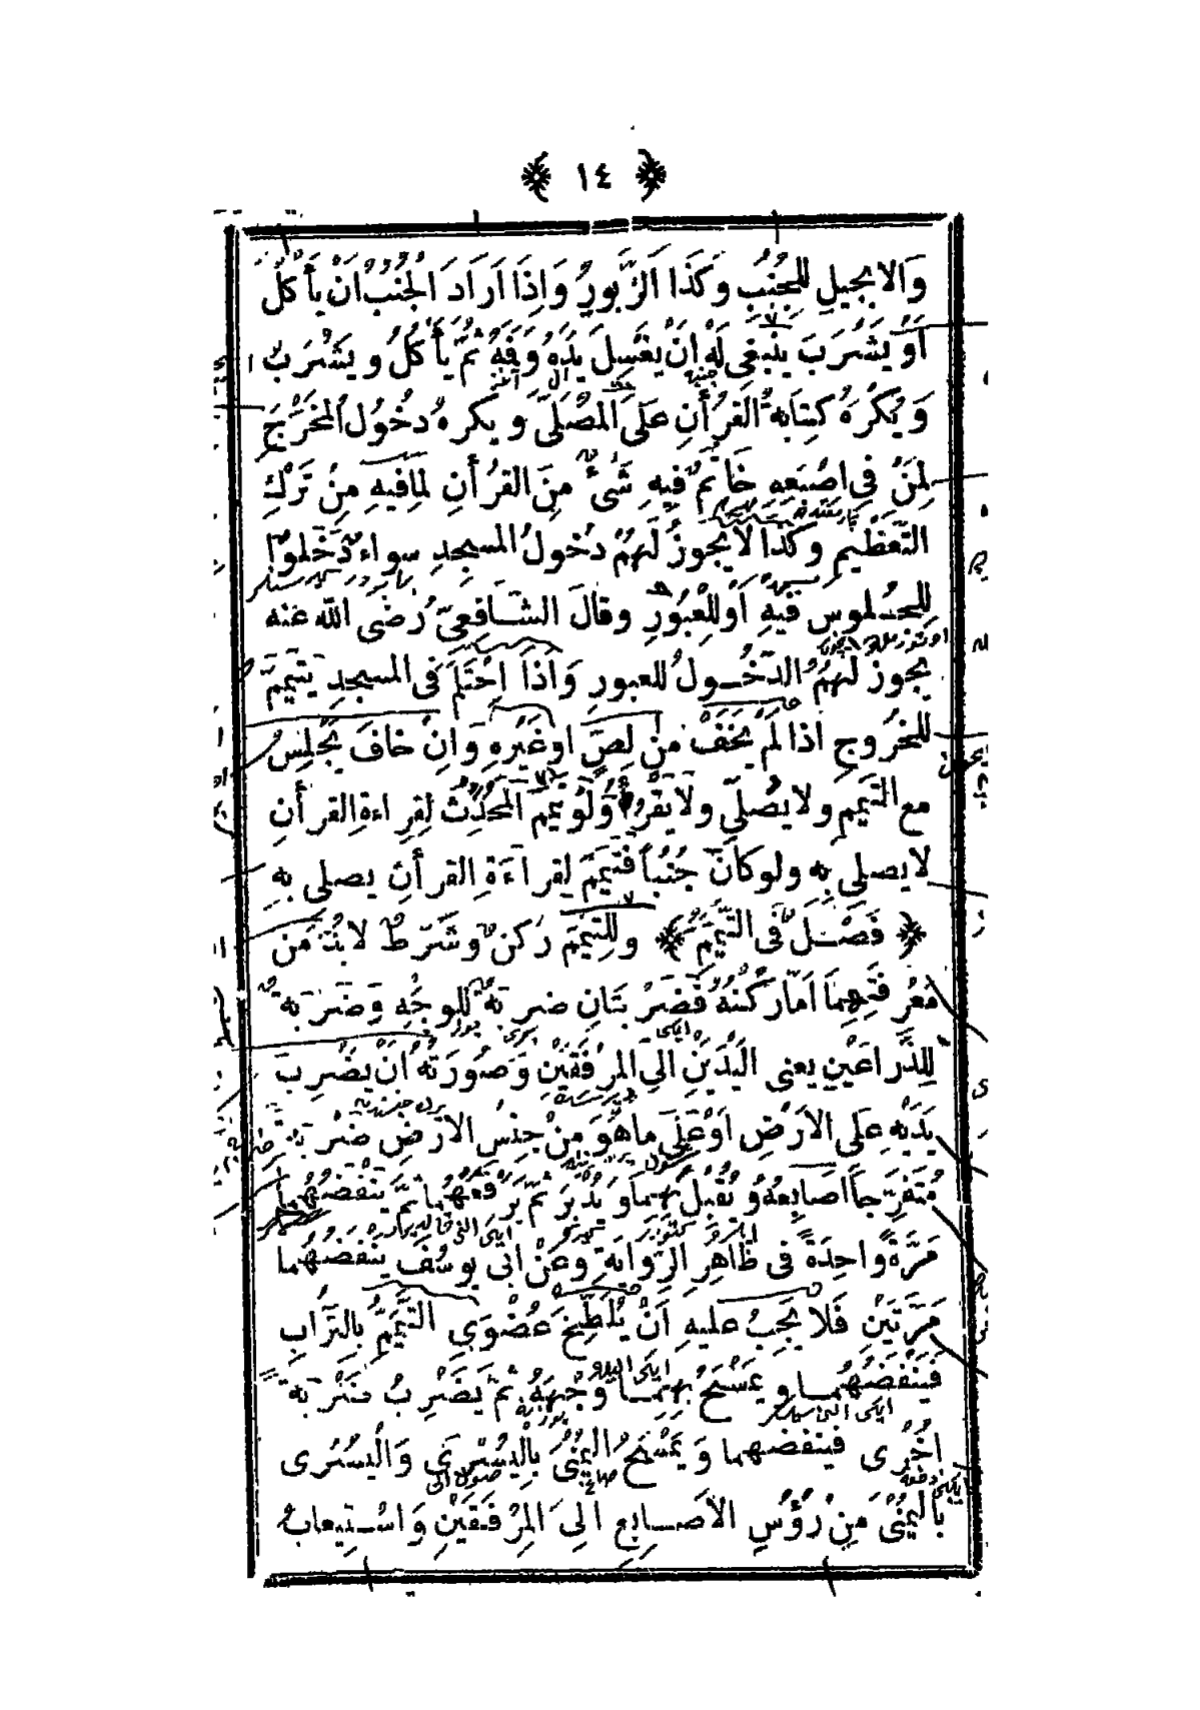 ﴿ ١٤ ﴾
وَالانجيلِ للجُنُبِ وَكَذَا الزَّبُورِ وَاِذَا اَرَادَ الْجُنُبُ اَنْ يَأْكُلَ
اَوْ يَشْرَبَ يَنْبَغِى لَهُ اَنْ يَغْسِلَ يَدَهُ وَفَمَهُ ثُمَّ يَأْكُلُ وَيَشْرَبُ
وَيُكْرَهُ كِتَابَةُ القُرْأٰنِ عَلَى المُصَلَّى وَيكره دُخُولُ المَخْرَجِ
لِمَنْ فِى اِصْبَعِهِ خَاتَمٌ فِيهِ شَىْءٌ مِنَ القُرْأٰنِ لِمَا فيهِ مِنْ تَرْكِ
التَّعْظِيمِ وَكَذَا لَا يَجُوزُ لَهُمْ دُخُولُ المسجدِ سواء دَخَلُوا
لِلجُلوسِ فِيهِ اَوْ لِلْعُبُورِ وقَالَ الشَّافِعِىُّ رَضَى اللّٰه عنه
يجوزُ لَهُمُ الدُّخُولُ للعبورِ وَاِذَا اِحْتَلَمَ فِى المسجدِ يَتَيَمَّمُ
للخُرُوجِ اِذَا لَمْ يَخَفْ مِنْ لِصٍّ اوغَيْرِهِ وَاِنْ خافَ يَجْلِسُ
مع التَّيَمُّمِ ولا يُصَلِّى ولَا يَقْرَأُ وَلَوْ تَيَمَّمَ المُحْدِثُ لِقِراءةِ القرأٰنِ
لا يصلى بِه ولو كانَ جُنُباً فَتَيَمَّمَ لِقراءَةِ القرأٰنِ يصلى بِهِ
﴿ فَصْلٌ فى التَّيَمُّمِ ﴾ ولِلتَّيَمُّمِ رُكْنٌ وَشَرْطٌ لابُدَّ مِن
مَعْرِفَتِهِمَا اَمَّا رُكْنُهُ فَضَرْبَتَانِ ضربَةٌ للوجْهِ وَضَرْبَةٌ
لِلذِّرَاعَيْنِ يعنى اليَدَيْنِ اِلَى المِرْفَقَيْنِ وَصُورَتُهُ اَنْ يَضْرِبَ
يَدَيْهِ عَلى الاَرْضِ اَوْ عَلَى ما هُوَ مِنْ جِنْسِ الاَرْضِ ضَرْبَةً
مُتَفَرِّجاً اَصَابِعُهُ وَيُقْبِلُ بِهِمَا وَيُدْبِرُ ثُمَّ يَرْفَعُهُمَا ثُمَّ يَنْفُضُهُمَا
مَرَّةً وَاحِدَةً فى ظَاهِرِ الرِّوَايَةِ وَعَنْ اَبى يوسُفَ يَنْفُضُهُما
مَرَّتَيْنِ فَلَا يَجِبُ عليهِ اَنْ يُلَطِّخَ عُضْوَىِ التَّيَمُّمِ بِالتُّرَابِ
فَيَنْفُضُهُمَا وَيَمْسَحُ بِهِمَا وَجْهَهُ ثُمَّ يَضْرِبُ ضَرْبَةً
اُخْرٰى فينفضهما وَيَمْسَحُ اليُمْنٰى بِالْيُسْرٰى وَالْيُسْرٰى
بِاليُمْنٰى مِنْ رُؤُسِ الاَصَابِعِ اِلَى المِرْفَقَيْنِ وَاسْتِيعابُ